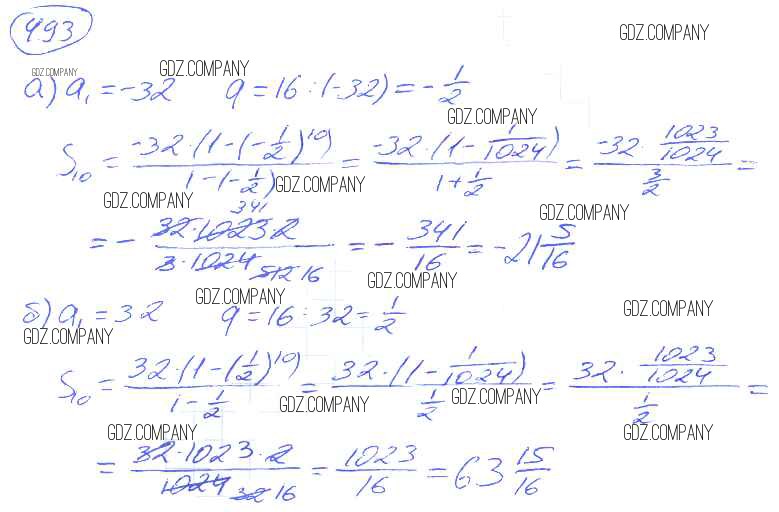 493
GDZ.COMPANY
GDZ.COMPANY GDZ.COMPANY
а) a₁ = -32 q = 16 : (-32) = -1/2
GDZ.COMPANY
S₁₀ = -32·(1-(-1/2)¹⁰) / 1-(-1/2) = -32·(1-1/1024) / 1+1/2 = -32·1023/1024 / 3/2 =
GDZ.COMPANY
GDZ.COMPANY GDZ.COMPANY
= - 32·1023·2 / 3·1024 341 512 16 = - 341/16 = -21 5/16
GDZ.COMPANY
GDZ.COMPANY GDZ.COMPANY
б) a₁ = 32 q = 16 : 32 = 1/2
GDZ.COMPANY
S₁₀ = 32·(1-(1/2)¹⁰) / 1-1/2 = 32·(1-1/1024) / 1/2 = 32·1023/1024 / 1/2 =
GDZ.COMPANY GDZ.COMPANY
GDZ.COMPANY GDZ.COMPANY
= 32·1023·2 / 1024 32 16 = 1023/16 = 63 15/16